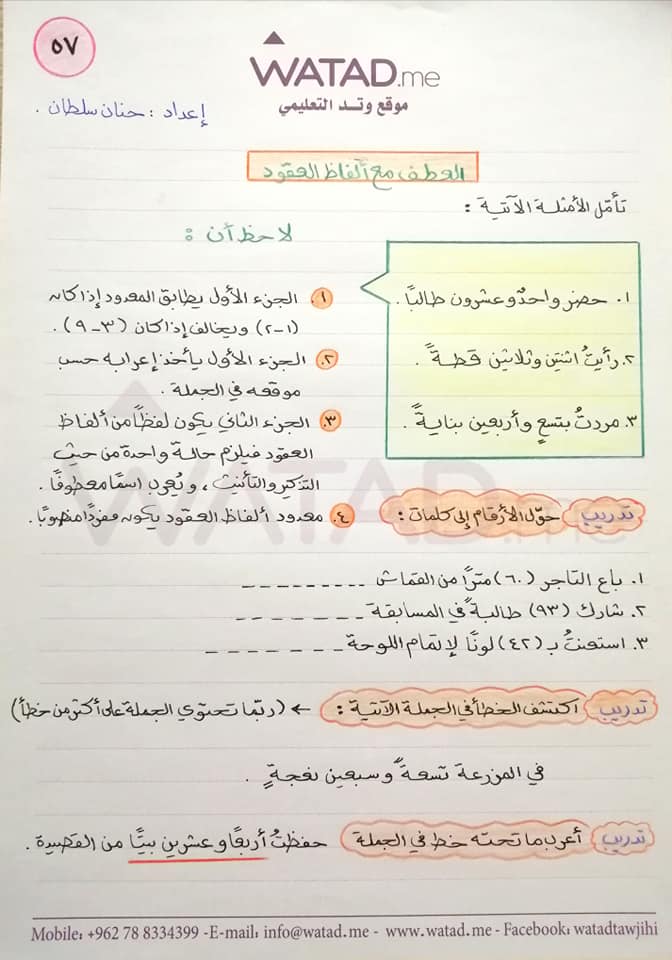 ٥٧
WATAD.me
موقع وتد التعليمي
إعداد : حنان سلطان .
العطف مع ألفاظ العقود
تأمّل الأمثلة الآتية :
١. حضر واحدٌ وعشرون طالبًا .
٢. رأيتُ اثنتين وثلاثين قطةً .
٣. مررتُ بتسعٍ وأربعين بنايةً .
لاحظ أن :
١. الجزء الأول يطابق المعدود إذا كان
(١-٢) ويخالف إذا كان (٣-٩) .
٢. الجزء الأول يأخذ إعرابه حسب
موقعه في الجملة .
٣. الجزء الثاني يكون لفظًا من ألفاظ
العقود فيلزم حالة واحدة من حيث
التذكير والتأنيث ، ويُعرب اسمًا معطوفًا .
٤. معدود ألفاظ العقود يكون مفردًا منصوبًا .
تدريب حوّل الأرقام إلى كلمات :
١. باع التاجر (٦٠) مترًا من القماش _ _ _ _ _ _ _ _ _
٢. شارك (٩٣) طالبةً في المسابقة _ _ _ _ _ _ _
٣. استعنتُ بـ (٤٢) لونًا لإتمام اللوحة _ _ _ _ _ _ _
تدريب اكتشف الخطأ في الجملة الآتية : ← (ربّما تحتوي الجملة على أكثر من خطأ)
في المزرعة تسعةً وسبعين نعجةٍ .
تدريب أعرب ما تحته خط في الجملة حفظتُ أربعًا وعشرين بيتًا من القصيدة .
Mobile: +962 78 8334399 -E-mail: info@watad.me - www.watad.me - Facebook: watadtawjihi